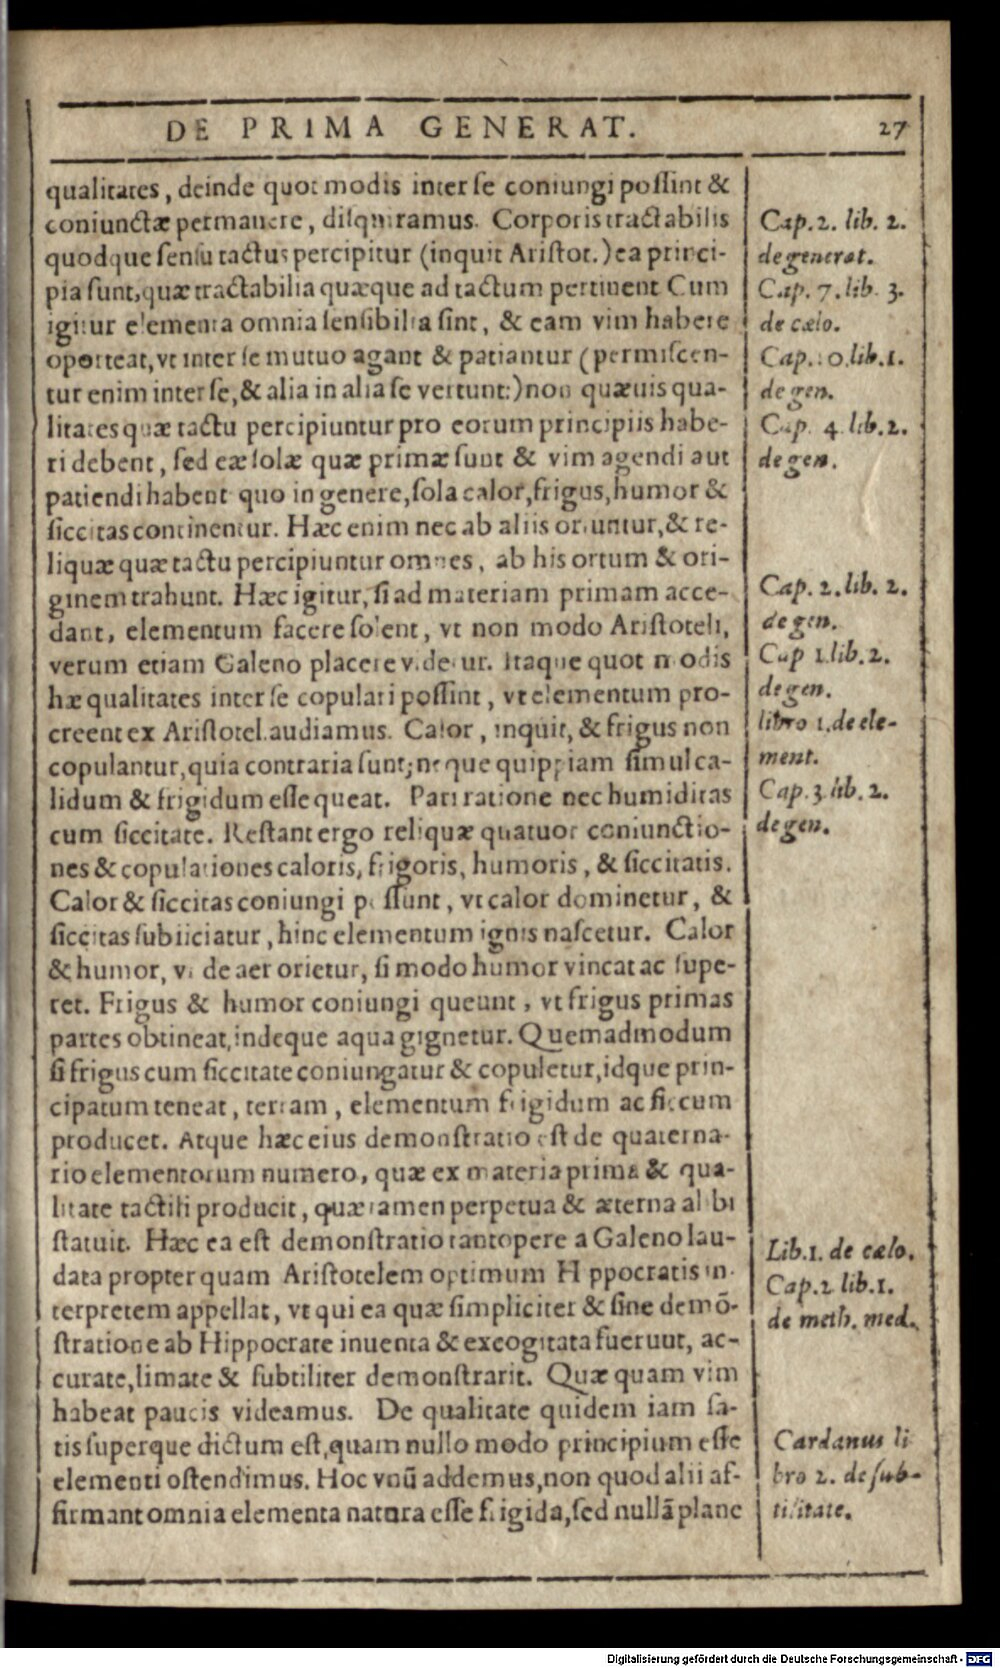 DE PRIMA GENERAT. 27
qualitates, deinde quot modis inter se coniungi possint &
coniunctæ permanere, disquiramus. Corporis tractabilis
quodque sensu tactus percipitur (inquit Aristot.) ea princi-
pia sunt, quæ tractabilia quæque ad tactum pertinent Cum
igitur elementa omnia sensibilia sint, & eam vim habere
oporteat, vt inter se mutuo agant & patiantur (permiscen-
tur enim inter se, & alia in alia se vertunt:) non quæuis qua-
litates quæ tactu percipiuntur pro eorum principiis habe-
ri debent, sed eæ solæ quæ primæ sunt & vim agendi aut
patiendi habent quo in genere, sola calor, frigus, humor &
siccitas continentur. Hæc enim nec ab aliis oriuntur, & re-
liquæ quæ tactu percipiuntur omnes, ab his ortum & ori-
ginem trahunt. Hæc igitur, si ad materiam primam acce-
dant, elementum facere solent, vt non modo Aristoteli,
verum etiam Galeno placere videtur. Itaque quot modis
hæ qualitates inter se copulari possint, vt elementum pro-
creent ex Aristotel. audiamus. Calor, inquit, & frigus non
copulantur, quia contraria sunt; neque quippiam simul ca-
lidum & frigidum esse queat. Pari ratione nec humiditas
cum siccitate. Restant ergo reliquæ quatuor coniunctio-
nes & copulationes caloris, frigoris, humoris, & siccitatis.
Calor & siccitas coniungi possunt, vt calor dominetur, &
siccitas subiiciatur, hinc elementum ignis nascetur. Calor
& humor, vnde aer orietur, si modo humor vincat ac supe-
ret. Frigus & humor coniungi queunt, vt frigus primas
partes obtineat, indeque aqua gignetur. Quemadmodum
si frigus cum siccitate coniungatur & copuletur, idque prin-
cipatum teneat, terram, elementum frigidum ac siccum
producet. Atque hæc eius demonstratio est de quaterna-
rio elementorum numero, quæ ex materia prima & qua-
litate tactili producit, quæ tamen perpetua & æterna alibi
statuit. Hæc ea est demonstratio tantopere a Galeno lau-
data propter quam Aristotelem optimum Hippocratis in-
terpretem appellat, vt qui ea quæ simpliciter & sine demõ-
stratione ab Hippocrate inuenta & excogitata fueruut, ac-
curate, limate & subtiliter demonstrarit. Quæ quam vim
habeat paucis videamus. De qualitate quidem iam sa-
tis superque dictum est, quam nullo modo principium esse
elementi ostendimus. Hoc vnũ addemus, non quod alii af-
firmant omnia elementa natura esse frigida, sed nullã plane
Cap. 2. lib. 2.
de generat.
Cap. 7. lib. 3.
de cælo.
Cap. 10. lib. 1.
de gen.
Cap. 4. lib. 2.
de gen.
Cap. 2. lib. 2.
de gen.
Cap 1. lib. 2.
de gen.
libro 1. de ele-
ment.
Cap. 3 lib. 2.
de gen.
Lib. 1. de cælo.
Cap. 2 lib. 1.
de meth. med.
Cardanus li
bro 2. de sub-
tilitate.
Digitalisierung gefördert durch die Deutsche Forschungsgemeinschaft - DFG